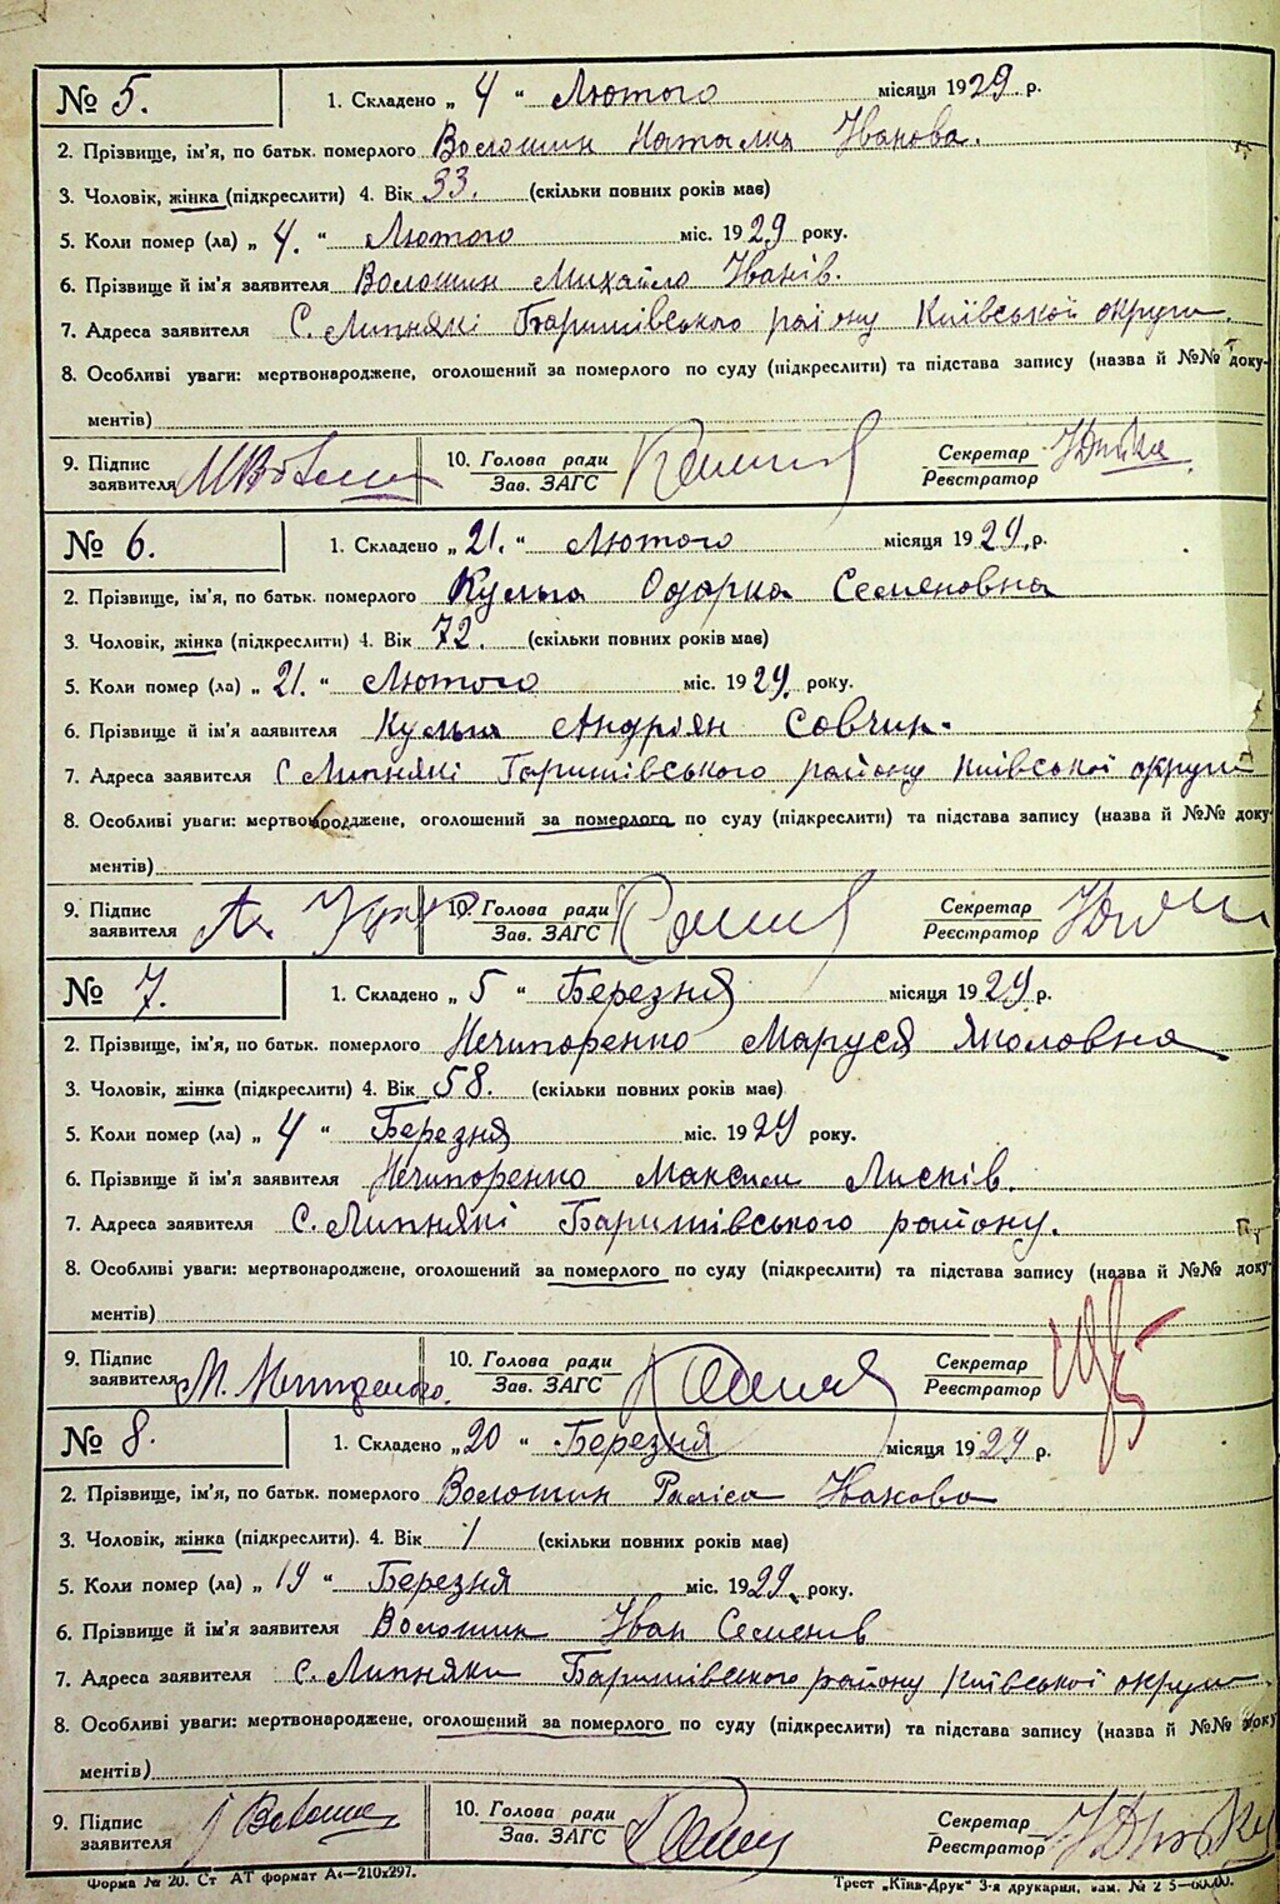 № 5. 1. Складено „ 4 “ Лютого місяця 1929 р.
2. Прізвище, ім'я, по батьк. померлого Волошин Наталка Іванова.
3. Чоловік, жінка (підкреслити) 4. Вік 33. (скільки повних років має)
5. Коли помер (ла) „ 4. “ Лютого міс. 1929 року.
6. Прізвище й ім'я заявителя Волошин Михайло Іванів.
7. Адреса заявителя С. Липнякі Баришівського району Київської округи.
8. Особливі уваги: мертвонароджене, оголошений за померлого по суду (підкреслити) та підстава запису (назва й №№ доку-
ментів)
9. Підпис заявителя 10. Голова ради Зав. ЗАГС Секретар Реєстратор
№ 6. 1. Складено „ 21. “ Лютого місяця 1929 р.
2. Прізвище, ім'я, по батьк. померлого Кульга Одарка Семеновна
3. Чоловік, жінка (підкреслити) 4. Вік 72. (скільки повних років має)
5. Коли помер (ла) „ 21. “ Лютого міс. 1929. року.
6. Прізвище й ім'я заявителя Кульга Андріян Совчин.
7. Адреса заявителя С Липнякі Баришівського району Київської округи
8. Особливі уваги: мертвонароджене, оголошений за померлого по суду (підкреслити) та підстава запису (назва й №№ доку-
ментів)
9. Підпис заявителя 10. Голова ради Зав. ЗАГС Секретар Реєстратор
№ 7. 1. Складено „ 5 “ Березня місяця 1929 р.
2. Прізвище, ім'я, по батьк. померлого Нечипоренко Маруся Яколовна
3. Чоловік, жінка (підкреслити) 4. Вік 58. (скільки повних років має)
5. Коли помер (ла) „ 4 “ Березня міс. 1929 року.
6. Прізвище й ім'я заявителя Нечипоренко Максим
7. Адреса заявителя С. Липнякі Баришівського району.
8. Особливі уваги: мертвонароджене, оголошений за померлого по суду (підкреслити) та підстава запису (назва й №№ доку-
ментів)
9. Підпис заявителя 10. Голова ради Зав. ЗАГС Секретар Реєстратор
№ 8. 1. Складено „ 20 “ Березня місяця 1929 р.
2. Прізвище, ім'я, по батьк. померлого Волошин Раліса Іванова
3. Чоловік, жінка (підкреслити). 4. Вік 1 (скільки повних років має)
5. Коли помер (ла) „ 19 “ Березня міс. 1929. року.
6. Прізвище й ім'я заявителя Волошин Іван Семенів
7. Адреса заявителя с. Липняки Баришівского району Київської округи
8. Особливі уваги: мертвонароджене, оголошений за померлого по суду (підкреслити) та підстава запису (назва й №№ доку-
ментів)
9. Підпис заявителя 10. Голова ради Зав. ЗАГС Секретар Реєстратор
Форма № 20. Ст АТ формат А4—210х297. Трест „Київ-Друк“ 3-я друкарня,